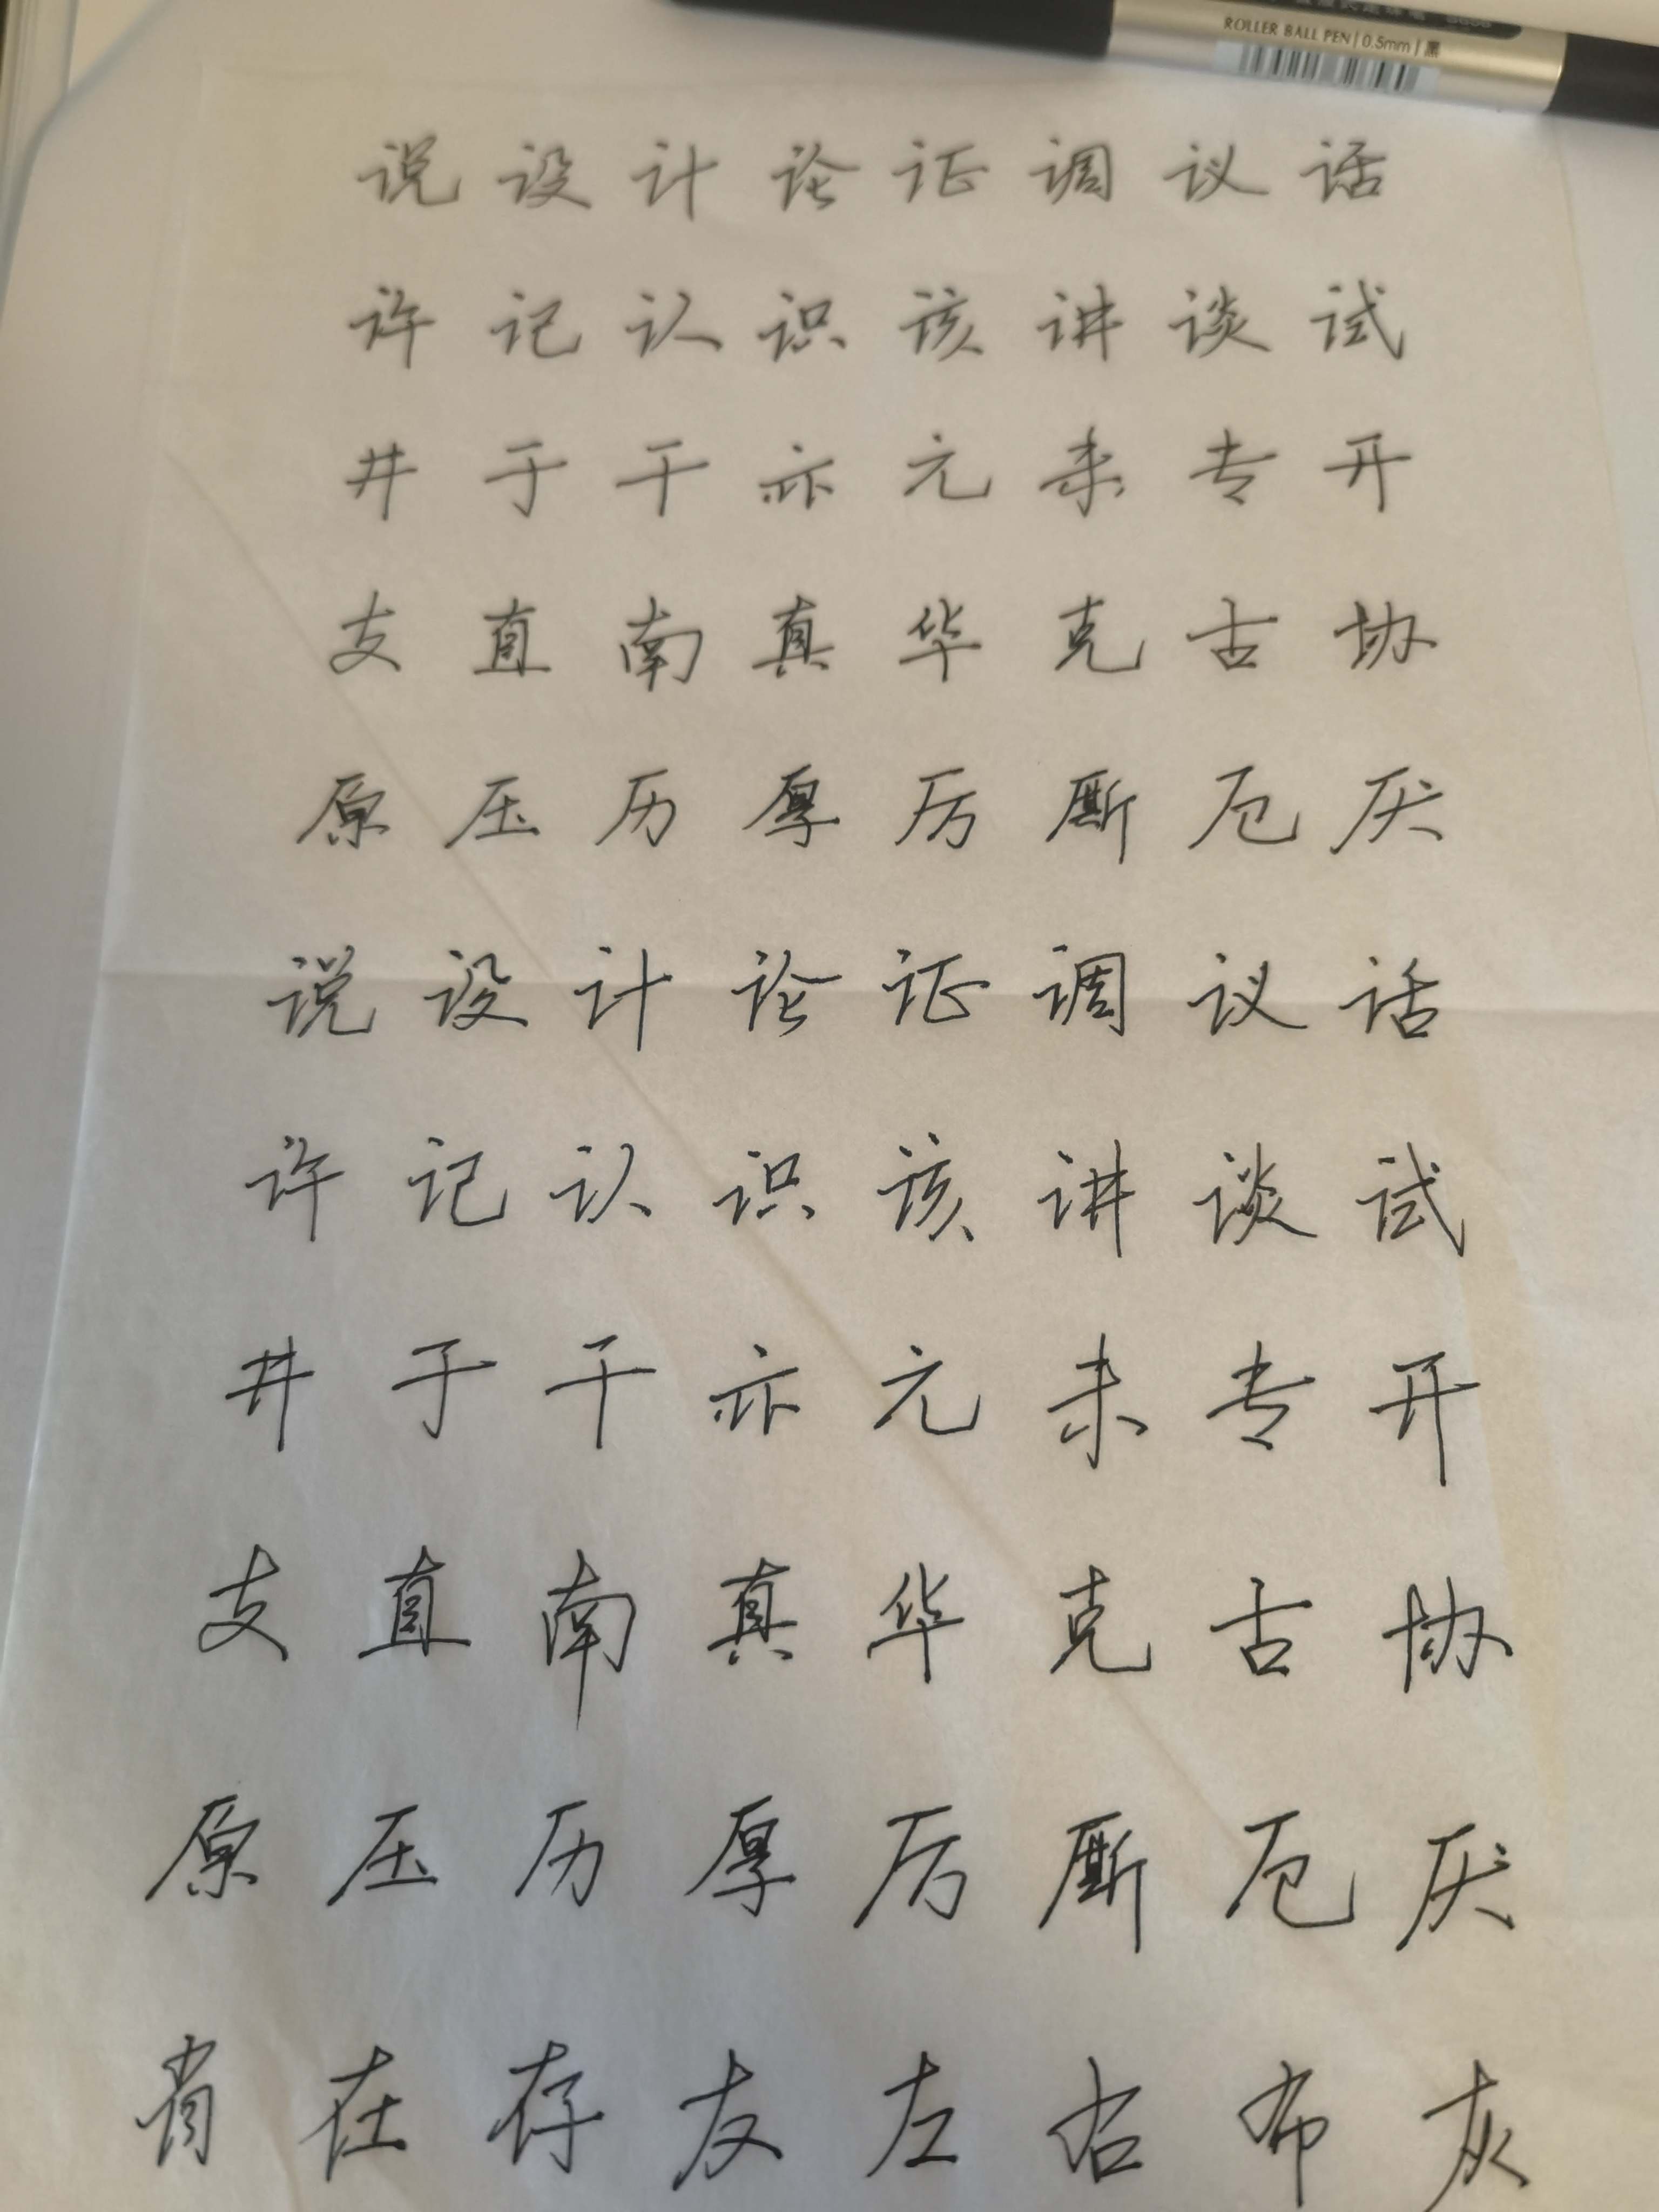 ROLLER BALL PEN | 0.5mm | 黑
说 设 计 论 证 调 议 话
许 记 认 识 该 讲 谈 试
井 于 干 亦 元 未 专 开
支 直 南 真 华 克 古 协
原 压 历 厚 厉 厮 厄 厌
说 设 计 论 证 调 议 话
许 记 认 识 该 讲 谈 试
井 于 干 亦 元 未 专 开
支 直 南 真 华 克 古 协
原 压 历 厚 厉 厮 厄 厌
有 在 存 友 左 右 布 灰